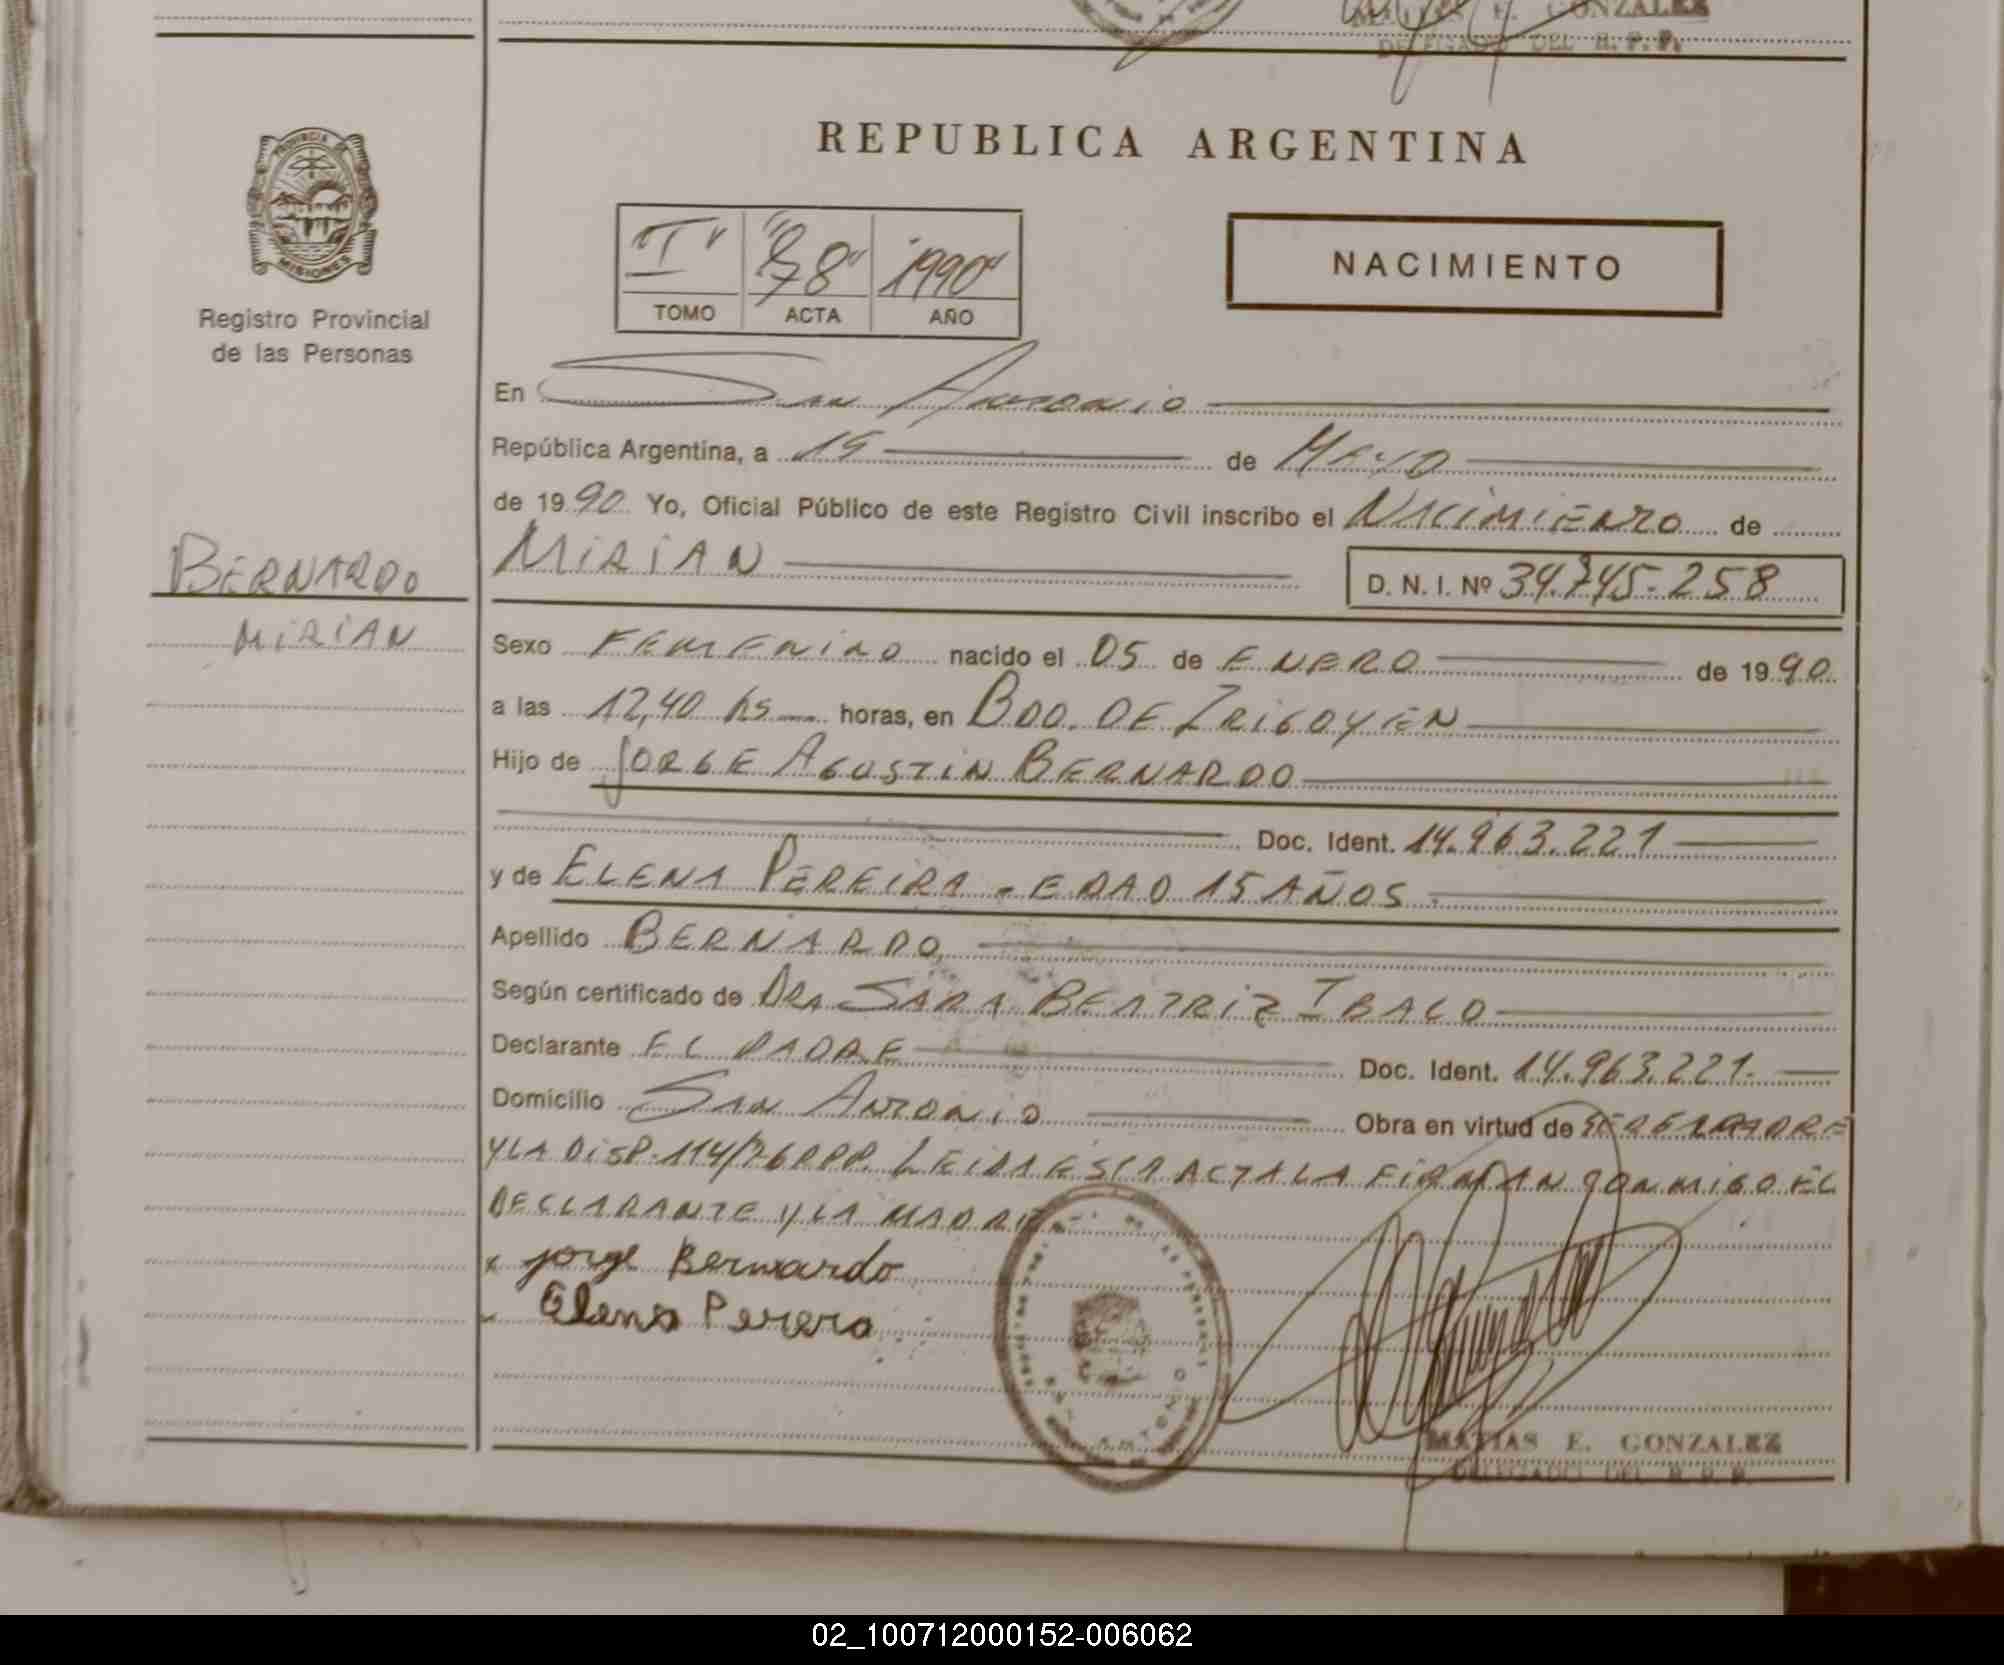 MATIAS E. GONZALEZ
DELEGADO DEL R. P. P.
PROVINCIA DE
MISIONES
Registro Provincial
de las Personas
REPUBLICA ARGENTINA
"I" "78" "1990"
TOMO ACTA AÑO
NACIMIENTO
En San Antonio
República Argentina, a 15 de MAYO
de 1990 Yo, Oficial Público de este Registro Civil inscribo el NACIMIENTO de
MIRIAN D. N. I. Nº 34.745.258
BERNARDO
MIRIAN
Sexo FEMENINO nacido el 05 de ENERO de 1990
a las 12,40 hs horas, en BDO. DE IRIGOYEN
Hijo de JORGE AGUSTIN BERNARDO
Doc. Ident. 14.963.221
y de ELENA PEREIRA - EDAD 15 AÑOS.
Apellido BERNARDO
Según certificado de DRA SARA BEATRIZ IBALO
Declarante EL PADRE Doc. Ident. 14.963.221.
Domicilio SAN ANTONIO Obra en virtud de SER EL PADRE
Y LA DISP. 114/76 RPP. LEIDA ESTA ACTA LA FIRMAN CONMIGO EL
DECLARANTE Y LA MADRE
x jorge Bernardo
Elena Perera
MATIAS E. GONZALEZ
DELEGADO DEL R. P. P.
02_100712000152-006062